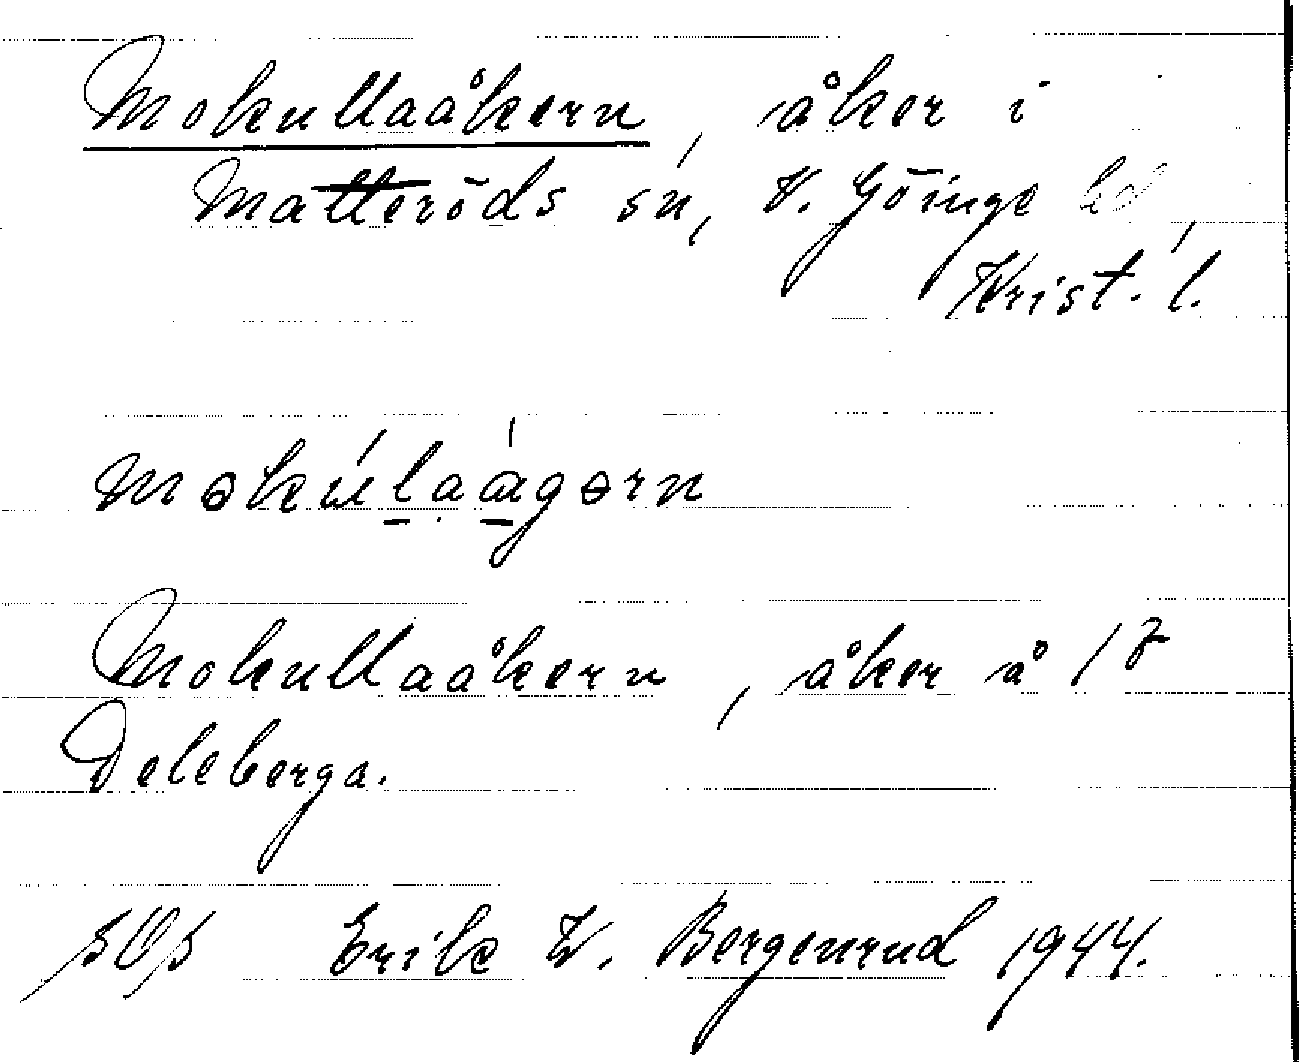 Mokullaåkern, åker i
Matteröds sn, V. Göinge hd,
Krist. l.
məkúlaágərn
Mokullaåkern, åker å 17
Deleberga.
Erik W. Bergenrud 1944.